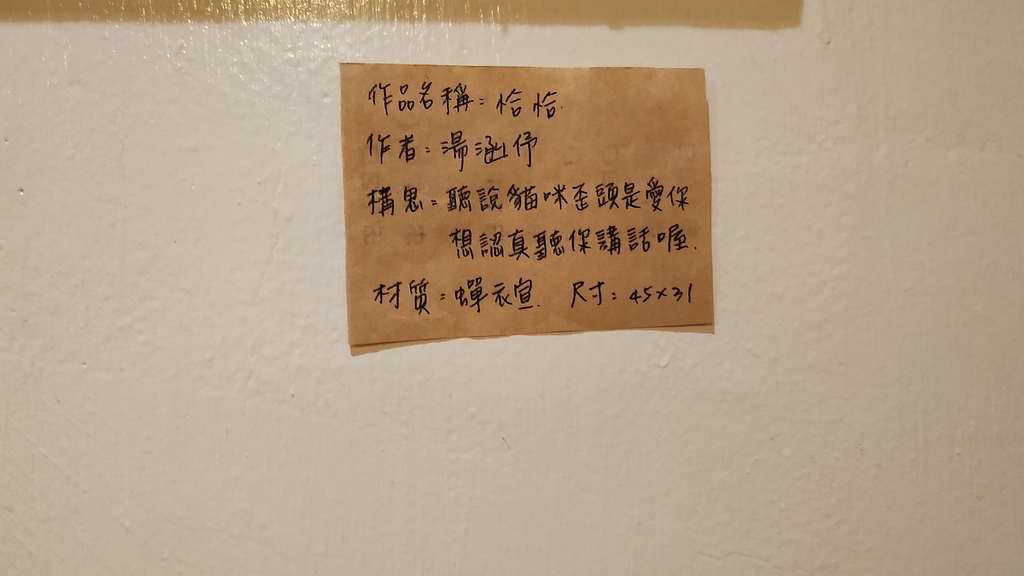 作品名稱：恰恰.
作者：湯涵伃
構思：聽說貓咪歪頭是愛你
想認真聽你講話喔.
材質：蟬衣宣. 尺寸：45×31